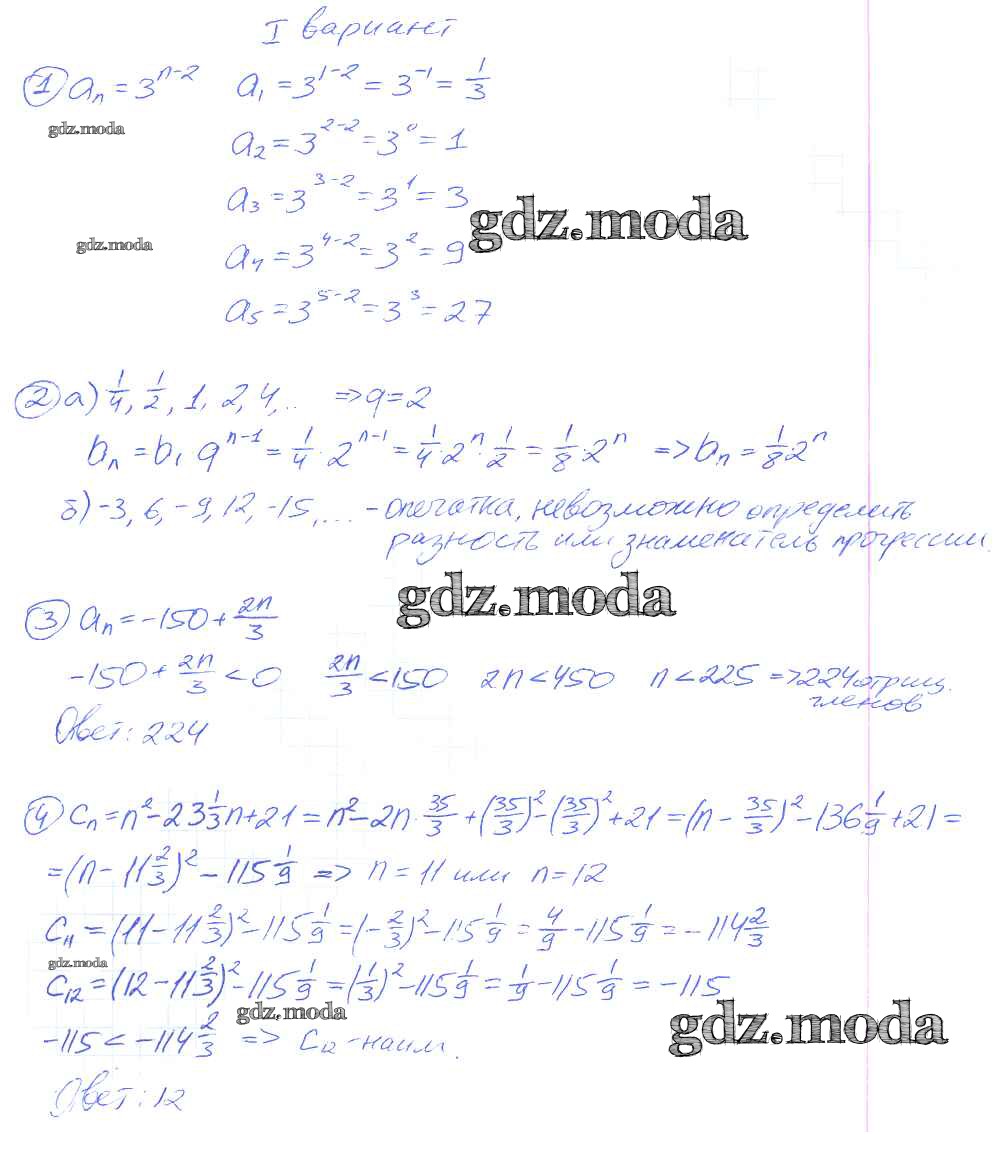 I вариант
① aₙ = 3ⁿ⁻² a₁ = 3¹⁻² = 3⁻¹ = 1/3
gdz.moda
a₂ = 3²⁻² = 3⁰ = 1
a₃ = 3³⁻² = 3¹ = 3
gdz.moda
gdz.moda
a₄ = 3⁴⁻² = 3² = 9
a₅ = 3⁵⁻² = 3³ = 27
② а) 1/4, 1/2, 1, 2, 4, ... => q = 2
bₙ = b₁ qⁿ⁻¹ = 1/4 · 2ⁿ⁻¹ = 1/4 · 2ⁿ · 1/2 = 1/8 · 2ⁿ => bₙ = 1/8 · 2ⁿ
б) -3, 6, -9, 12, -15, ... - опечатка, невозможно определить
разность или знаменатель прогрессии.
gdz.moda
③ aₙ = -150 + 2n/3
-150 + 2n/3 < 0 2n/3 < 150 2n < 450 n < 225 => 224 отриц.
членов
Ответ: 224
④ cₙ = n² - 23 1/3 n + 21 = n² - 2n · 35/3 + (35/3)² - (35/3)² + 21 = (n - 35/3)² - 136 1/9 + 21 =
= (n - 11 2/3)² - 115 1/9 => n = 11 или n = 12
c₁₁ = (11 - 11 2/3)² - 115 1/9 = (-2/3)² - 115 1/9 = 4/9 - 115 1/9 = -114 2/3
gdz.moda
c₁₂ = (12 - 11 2/3)² - 115 1/9 = (1/3)² - 115 1/9 = 1/9 - 115 1/9 = -115
gdz.moda
gdz.moda
-115 < -114 2/3 => c₁₂ - наим.
Ответ: 12